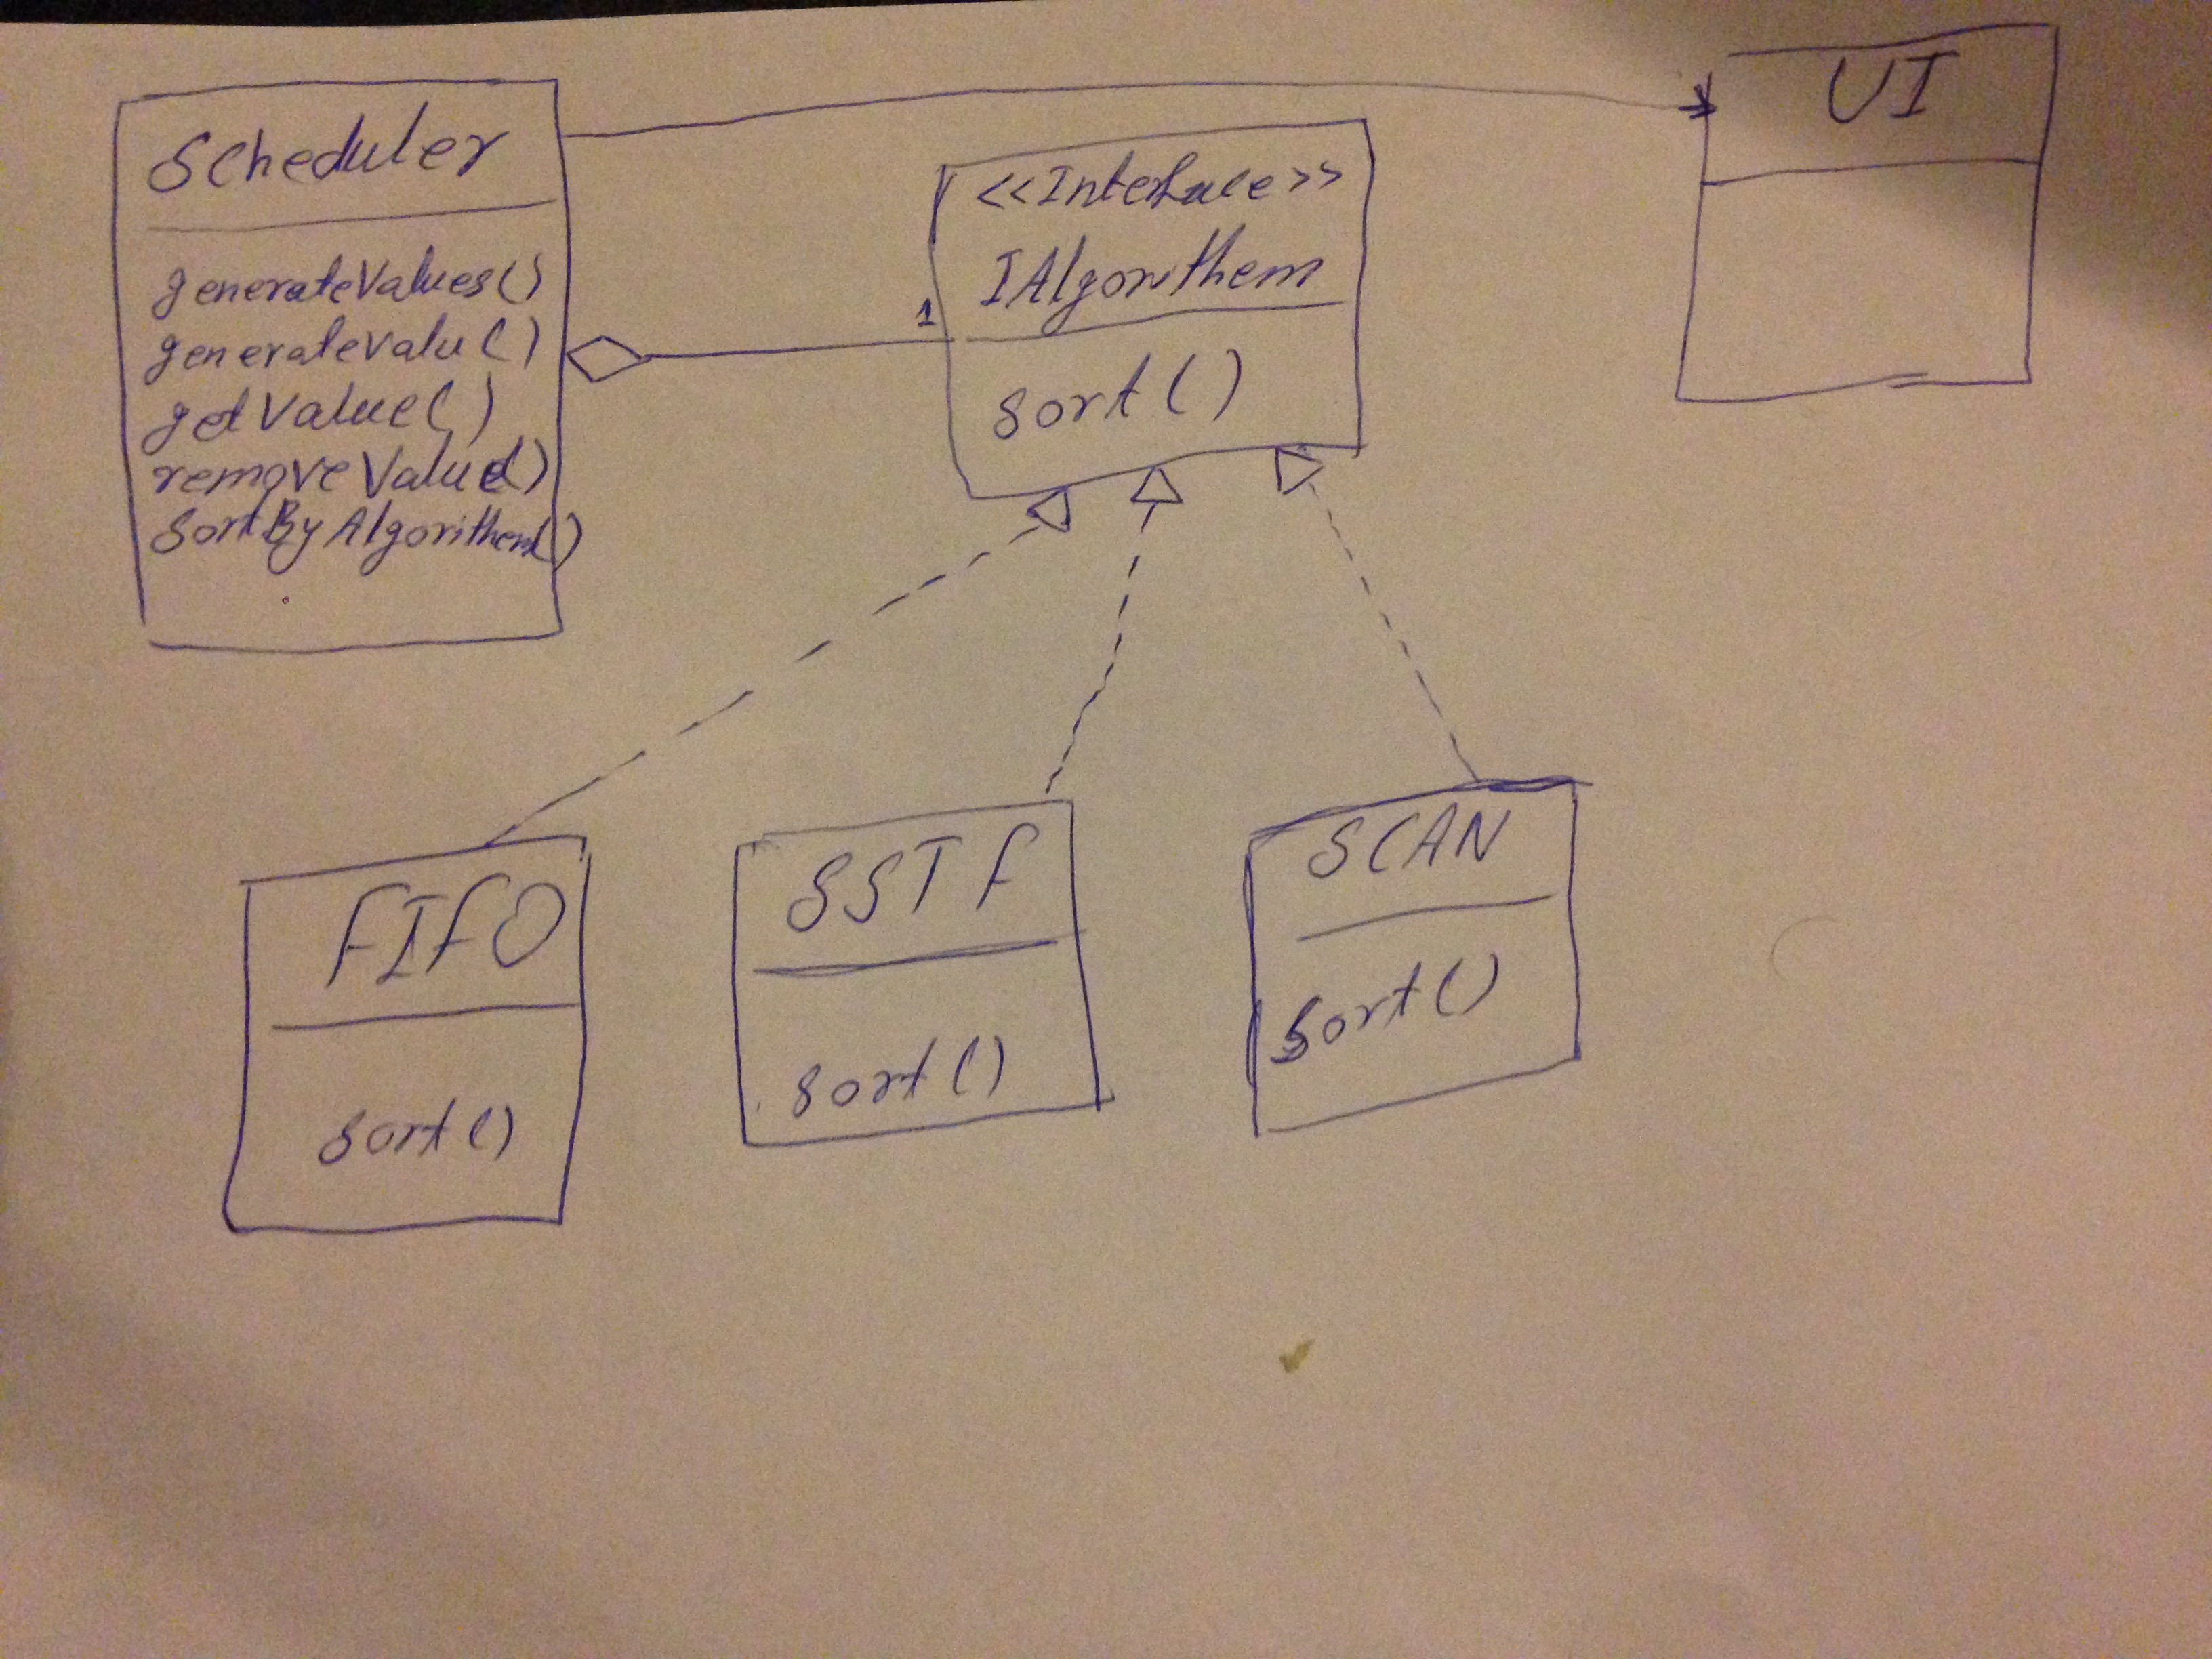 Scheduler
generateValues()
generatevalu()
getValue()
removeValue()
SortByAlgorithem()
<<Interface>>
IAlgorithem
1
sort()
UI
FIFO
sort()
SSTF
sort()
SCAN
sort()